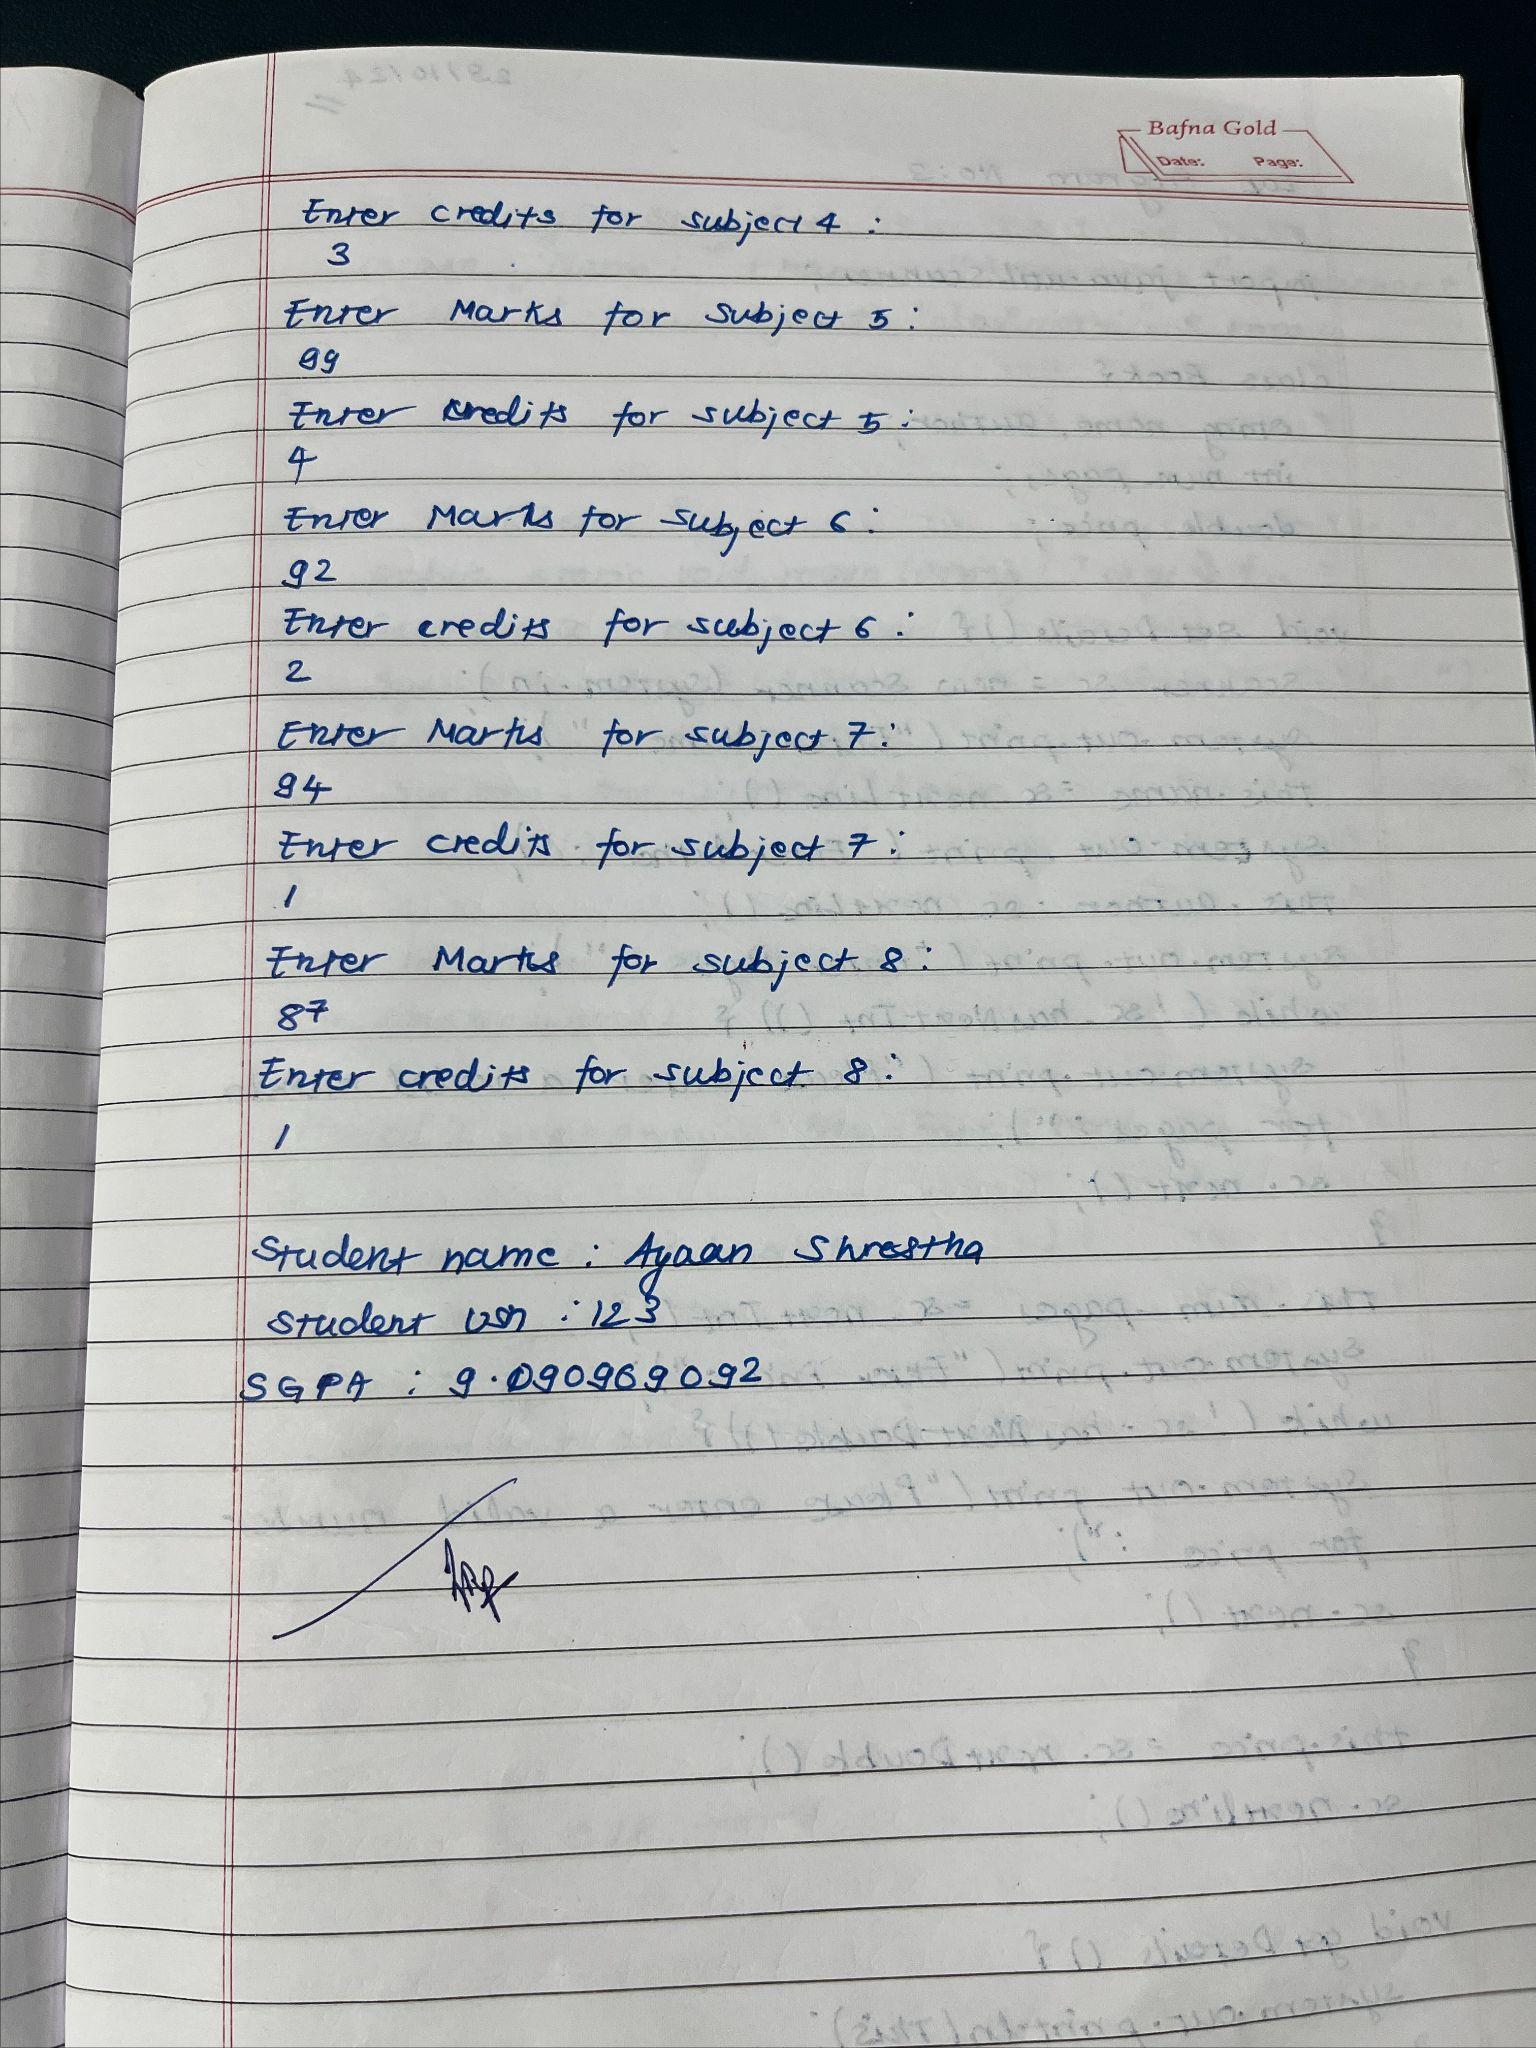 Bafna Gold
Date: Page:
Enter credits for subject 4 :
3
Enter Marks for subject 5 :
99
Enter credits for subject 5 :
4
Enter Marks for subject 6 :
92
Enter credits for subject 6 :
2
Enter Marks for subject 7 :
94
Enter credits for subject 7 :
1
Enter Marks for subject 8 :
87
Enter credits for subject 8 :
1
Student name : Ayaan Shrestha
Student usn : 123
SGPA : 9.090969092